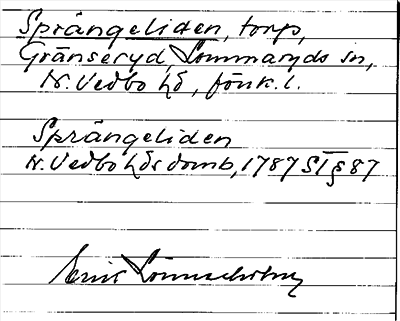 Sprängeliden, torp,
Gränseryd, Lommaryds sn,
N. Vedbo hd, Jönk. l.
Sprängeliden
N. Vedbo hds domb, 1787 ST § 87
Eric